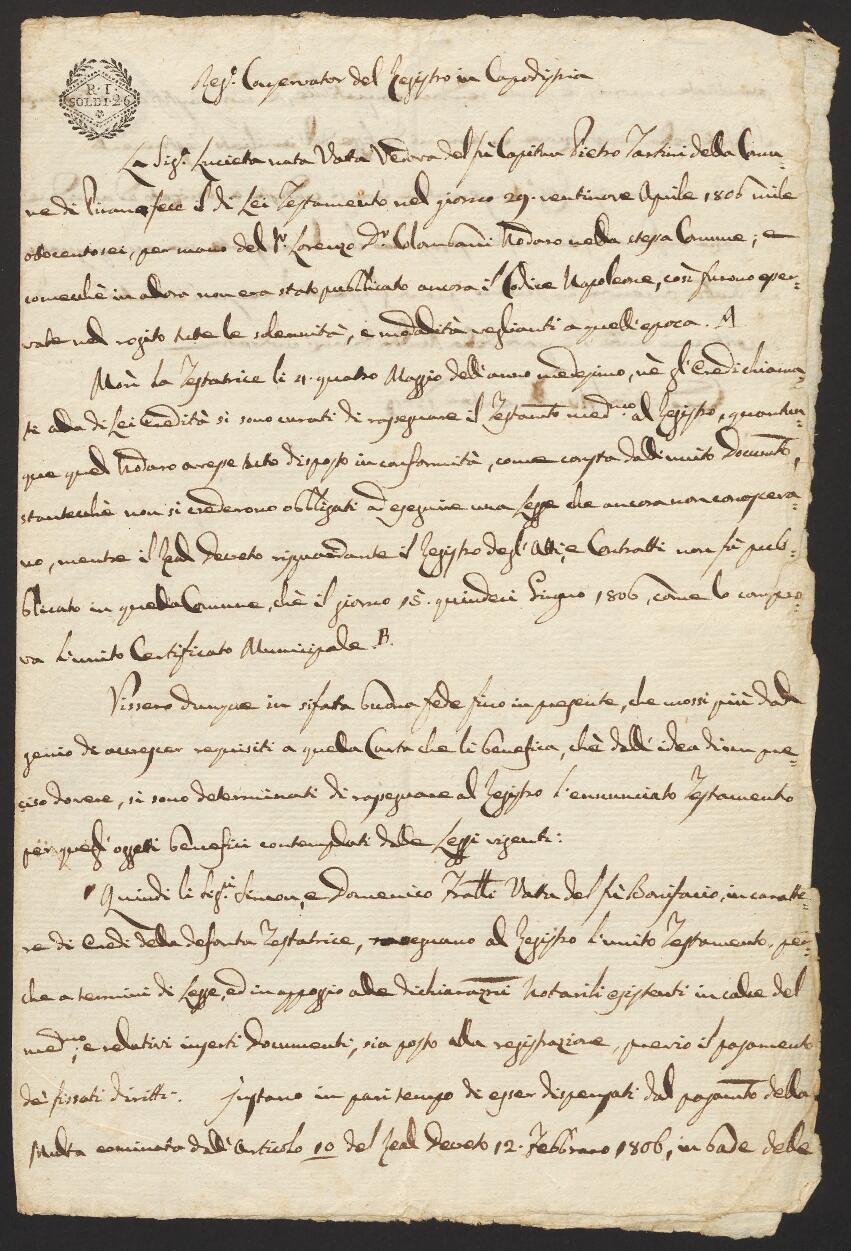 R·I
SOLDI·26
Reg.º Conservator del Registro in Capodistria
La Sig.ª Lucieta nata Vatta Vedova del fù Capitan Pietro Tartini della Comu=
ne di Pirano fece il di Lei Testamento nel giorno 29. ventinove Aprile 1806 mile
ottocentosei, per mano del Sr. Lorenzo Dr. Colombani Nodaro nella stessa Comune; e
comecchè in allora non era stato pubblicato ancora il Codice Napoleone, così furono osser=
vate nel rogito tutte le solennità, e modalità veglianti a quell'epoca. A
Morì la Testatrice li 4. quatro Maggio dell'anno medesimo, nè gl'Eredi chiama=
ti alla di Lei Eredità si sono curati di rassegnare il Testamto medmo al Registro, quantun=
que quel Nodaro avesse tutto disposto in conformità, come consta dall'unito Documto,
stantecchè non si crederono obbligati ad eseguire una Legge che ancora non conosceva=
no, mentre il Real Decreto risguardante il Registro degl'Atti, e Contratti non fù pub=
blicato in quella Comune, chè il giorno 15. quindeci Giugno 1806, come lo compro=
va l'unito Certificato Municipale. B.
Vissero dunque in sifata buona fede fino in presente, che mossi più dal
genio di accrescer requisiti a quella Carta che li benefica, chè dall'idea di un pre=
ciso dovere, si sono determinati di rassegnare al Registro l'enunciato Testamento
per quegl'oggetti benefici contemplati dalle Leggi vigenti:
Quindi li Sigri. Simon, e Domenico Fratli Vatta del fù Bonifacio, in caratte=
re di Eredi della defonta Testatrice, rassegnano al Registro l'unito Testamento, per=
che a termini di Legge, ed in appoggio alle dichiarazni Notarili esistenti in calce del
medmo, e relativi inserti Documenti, sia posto alla registrazione, previo il pagamento
de' fissati diritti. Instano in pari tempo di esser dispensati dal pagamto della
Multa cominata dall'Articolo 10 del Real Decreto 12. Febbraro 1806, in base delle